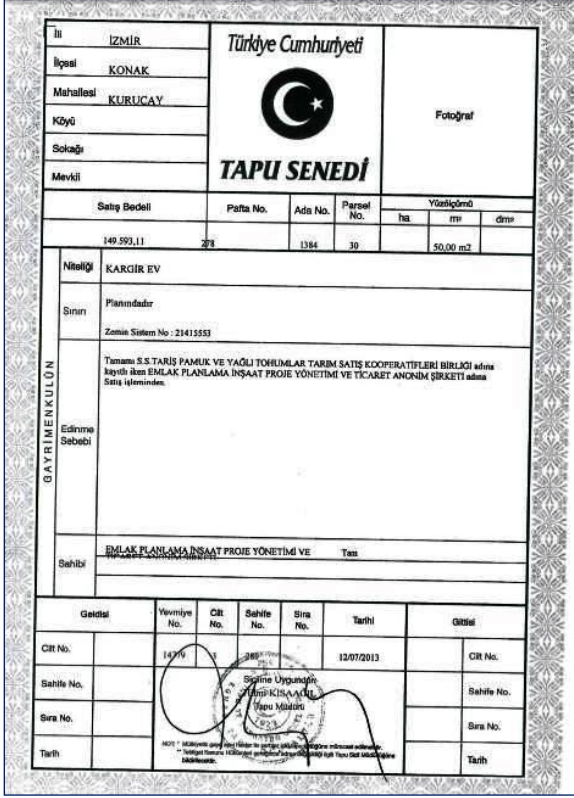 İli İZMİR
İlçesi KONAK
Mahallesi KURUCAY
Köyü
Sokağı
Mevkii
Türkiye Cumhuriyeti
TAPU SENEDİ
Fotoğraf
Satış Bedeli Pafta No. Ada No. Parsel No. Yüzölçümü
ha m² dm²
149.593,11 278 1384 30 50,00 m2
GAYRİMENKULÜN
Niteliği KARGİR EV
Sınırı Planındadır
Zemin Sistem No : 21415553
Edinme Sebebi
Tamamı S.S.TARİŞ PAMUK VE YAĞLI TOHUMLAR TARIM SATIŞ KOOPERATİFLERİ BİRLİĞİ adına
kayıtlı iken EMLAK PLANLAMA İNŞAAT PROJE YÖNETİMİ VE TİCARET ANONİM ŞİRKETİ adına
Satış işleminden.
Sahibi
EMLAK PLANLAMA İNŞAAT PROJE YÖNETİMİ VE Tam
TİCARET ANONİM ŞİRKETİ
Geldisi Yevmiye No. Cilt No. Sahife No. Sıra No. Tarihi Gittisi
Cilt No. 3 12/07/2013 Cilt No.
Sahife No. Siciline Uygundur Sahife No.
KISAAGIL
Sıra No. Tapu Müdürü Sıra No.
Tarih Tarih